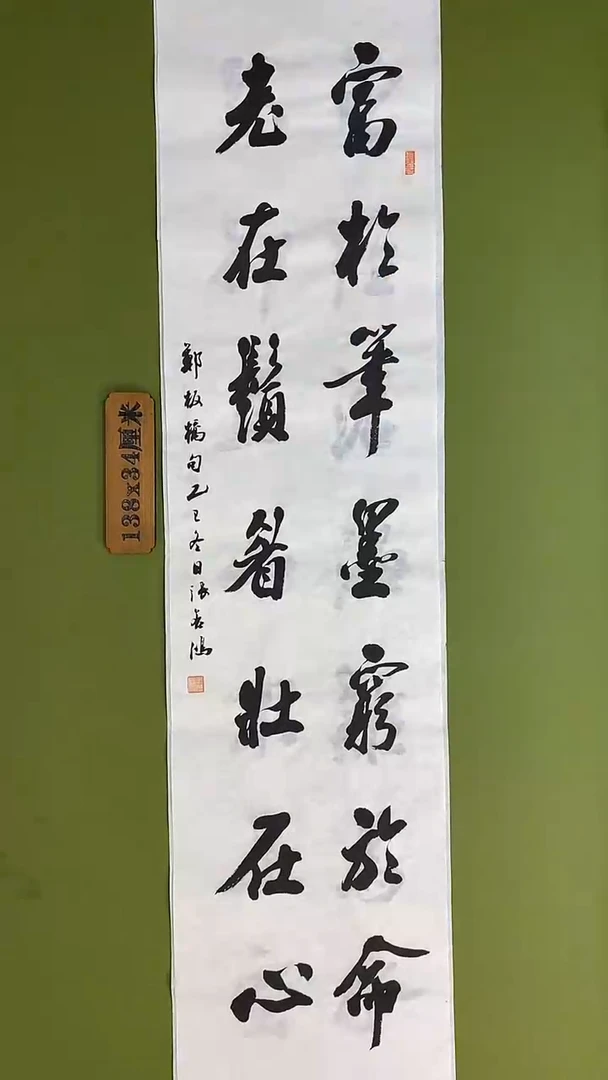 富於筆墨窮於命
老在鬚眉壯在心
鄭板橋句乙巳冬日張
138x34厘米